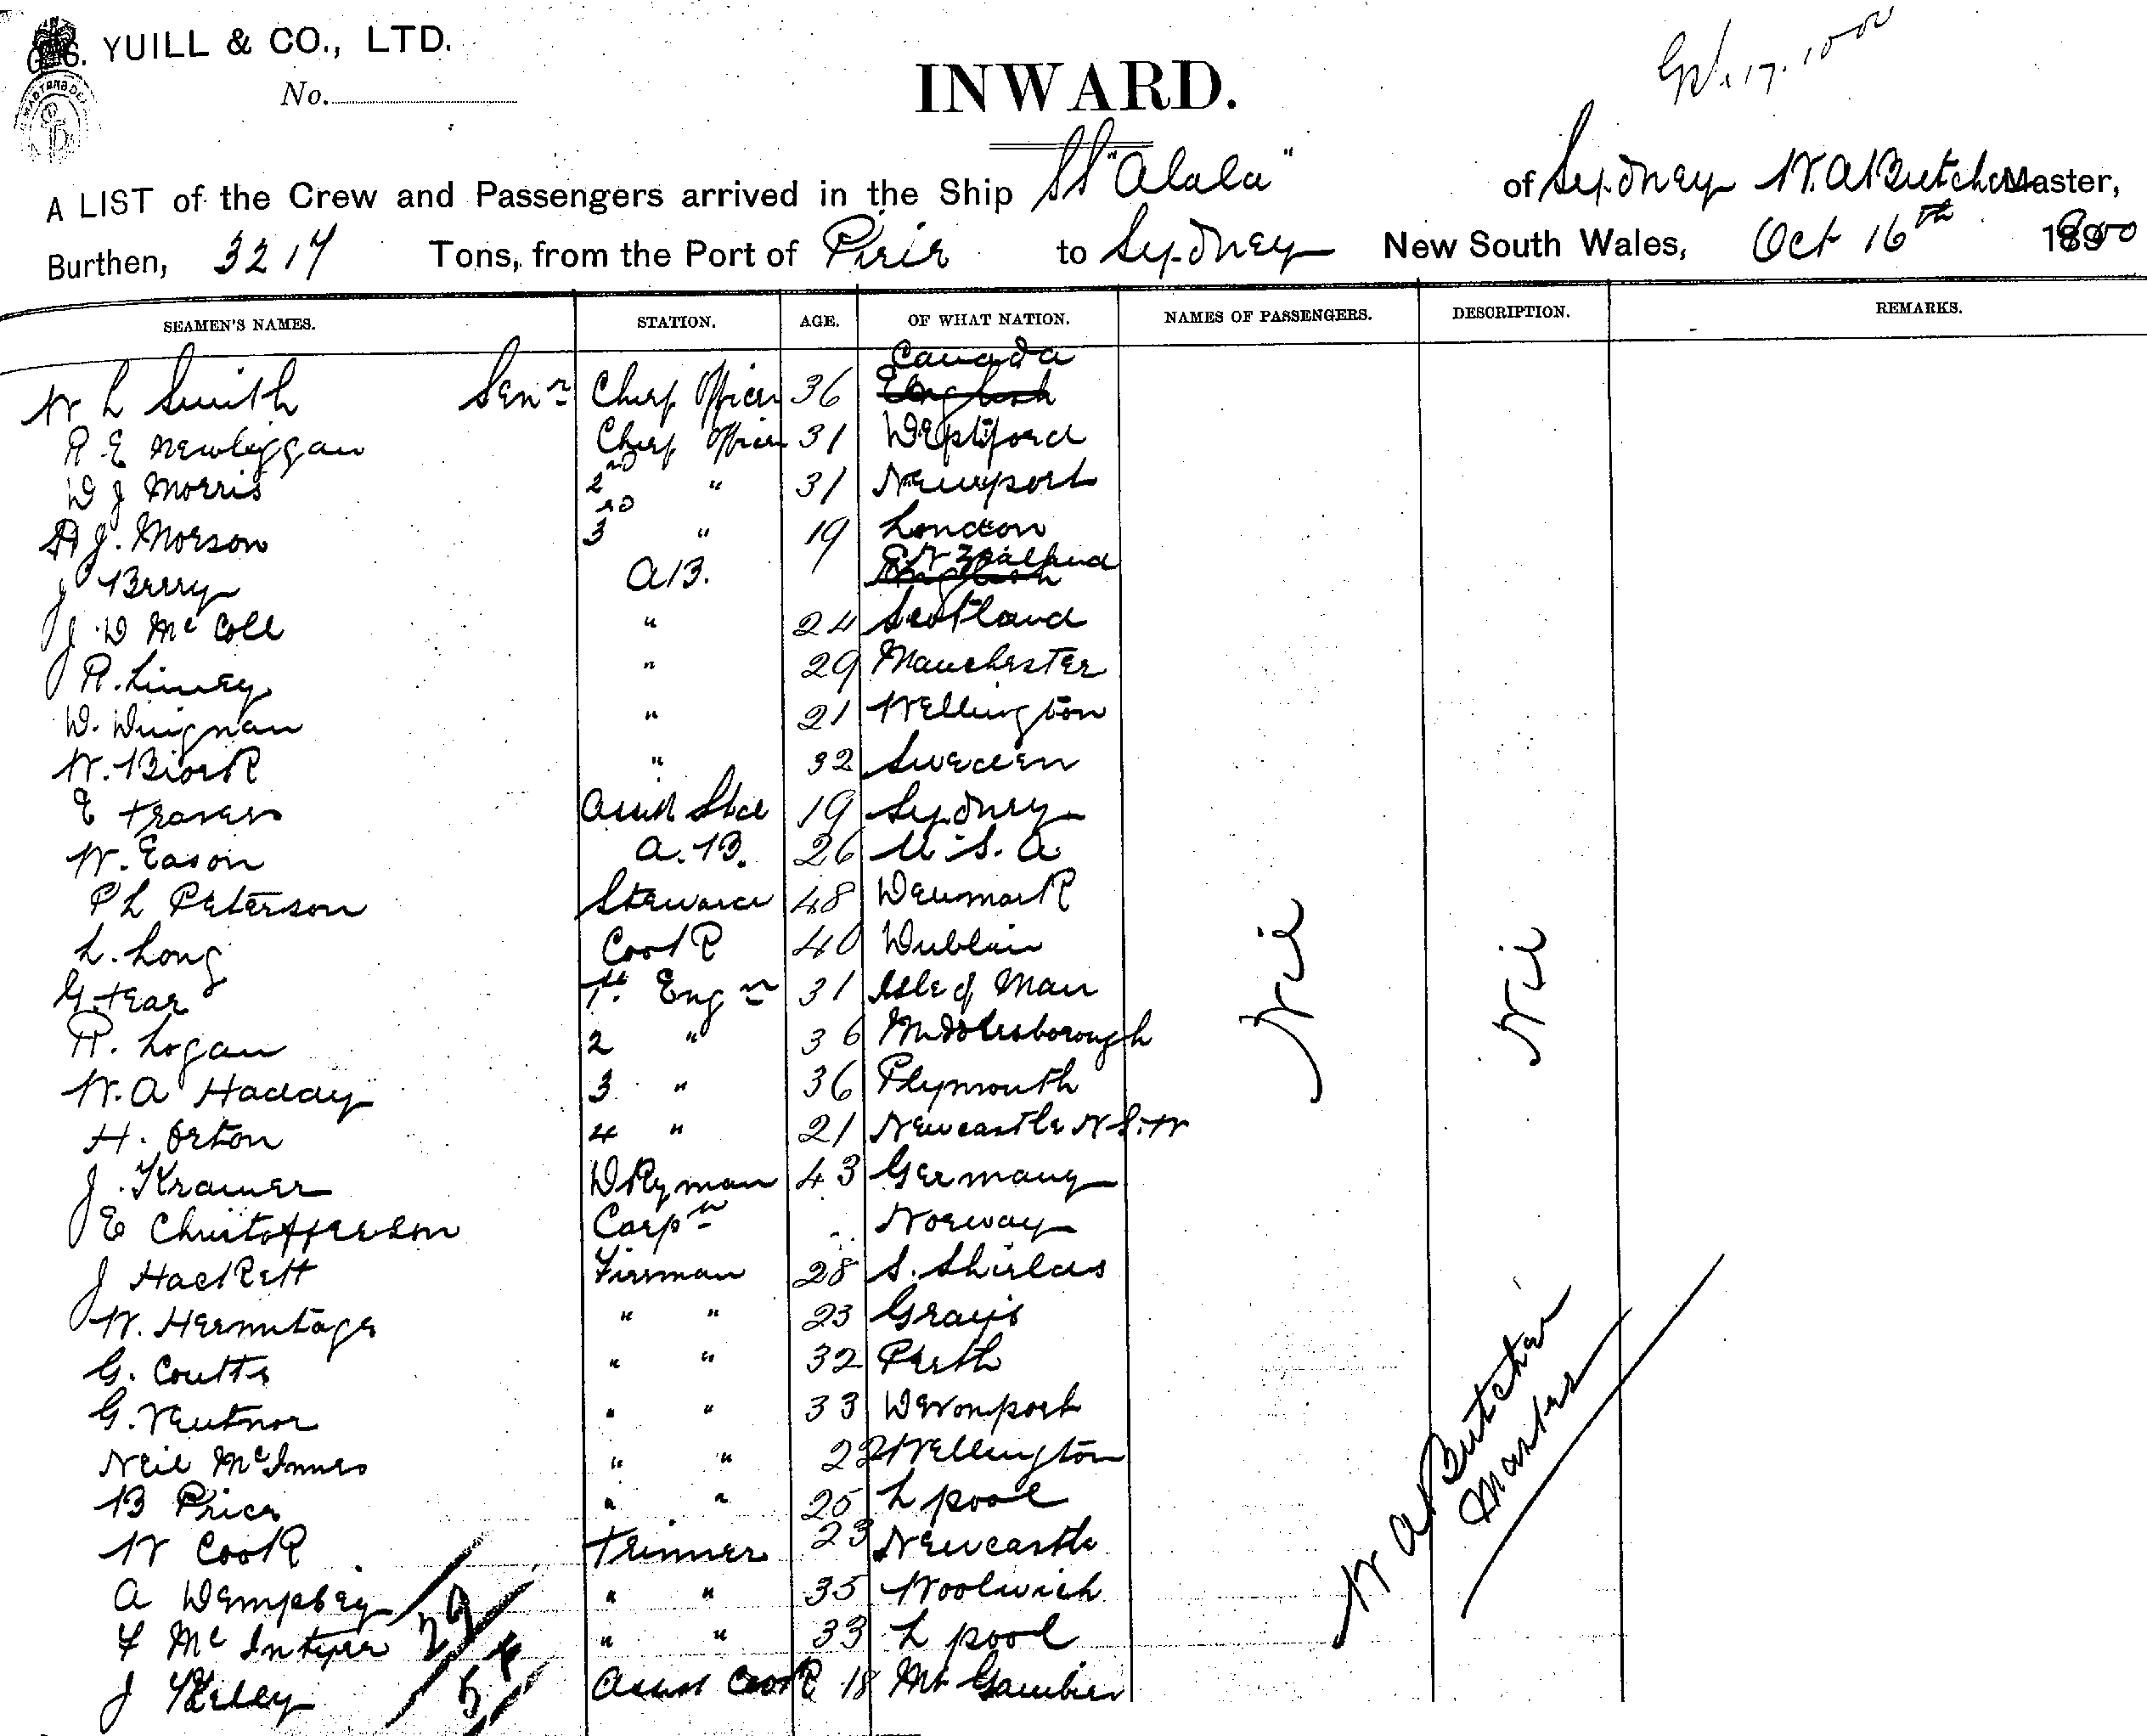 G. S. YUILL & CO., LTD.
No.
INWARD.
A LIST of the Crew and Passengers arrived in the Ship SS "Alala" of Sydney W. A Butcher Master,
Burthen, 3217 Tons, from the Port of Pirie to Sydney New South Wales, Oct 16th 1900
SEAMEN'S NAMES. STATION. AGE. OF WHAT NATION. NAMES OF PASSENGERS. DESCRIPTION. REMARKS.
Canada
W L Smith Senr Chief Officer 36 English
R E Newbiggan Chief Officer 31 Deptford
W J Morris 2nd " 31 Newport
A J. Morson 3rd " 19 London
J Berry A.B. N Zealand English
J. D McColl " 24 Scotland
R. Linney " 29 Manchester
D. Duignan " 21 Wellington
W. Biork " 32 Sweden
E Travers Assist Std 19 Sydney
W. Eason A.B. 26 U.S.A
P L Peterson Steward 48 Denmark
L. Long Cook 40 Dublin
G. Tear 1st Engnr 31 Isle of Man
R. Logan 2 " 36 Middlesborough
W. A Hadday 3 " 36 Plymouth
H. Orton 4 " 21 Newcastle N.S.W
J. Kramer Dkyman 43 Germany
E Christofferson Carpnr Norway
J Hackett Fireman 28 S. Shields
W. Hermitage " " 23 Grays
G. Coutts " " 32 Perth
G. Veutnor " " 33 Devonport
Neil McInnes " " 22 Wellington
B Price " " 25 L pool
W Cook Trimmer 23 Newcastle
A Dempsey " " 35 Woolwich
F McIntyre " " 33 L pool
J Kelley Assist Cook 18 Mt Gambier
Nil
Nil
W A Butcher
Master
29
54